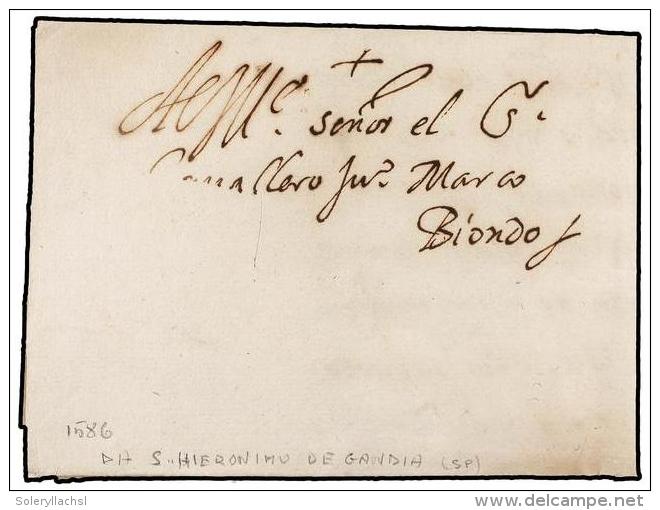 +
Al Mº. señor el Cr.
Cavallero Juº. Marco
Biondo
1586
DA S. HIERONIMU DE GANDIA (SP)
Soleryllachsl
delcampe.net